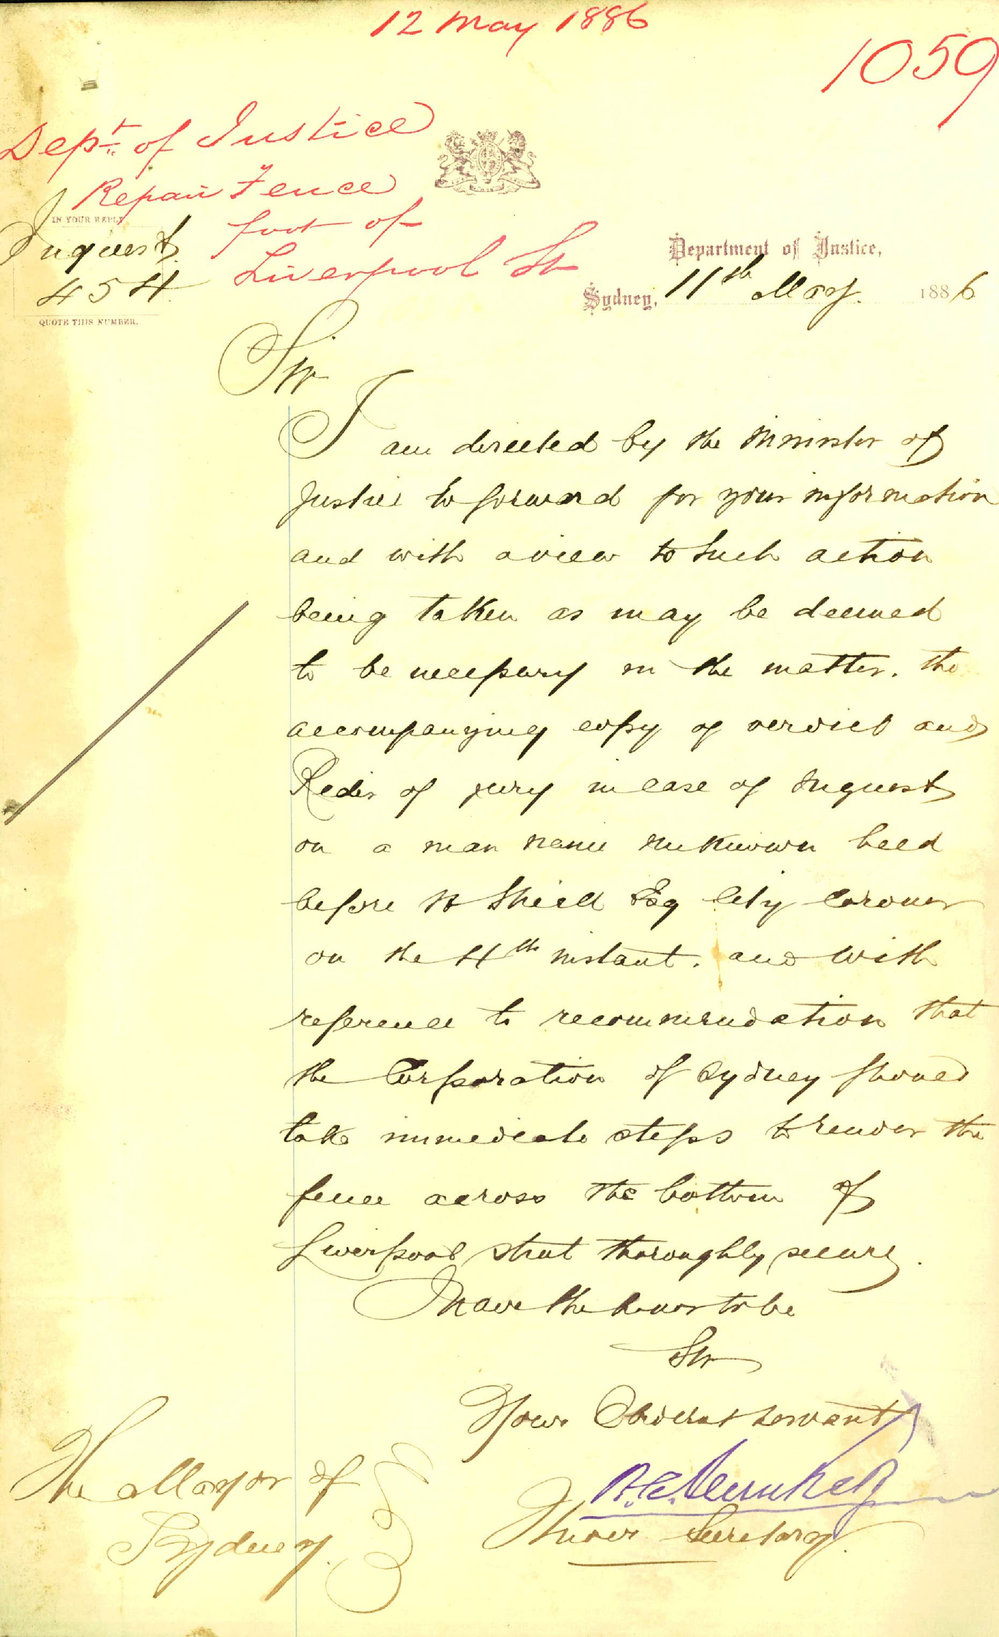 12 May 1886
1059
Dept. of Justice
Repair Fence
foot of
Liverpool St
IN YOUR REPLY
Inquest
454
QUOTE THIS NUMBER.
Department of Justice,
Sydney, 11th May. 1886
Sir
I am directed by the Minister of
Justice to forward for your information
and with a view to such action
being taken as may be deemed
to be necessary in the matter. the
accompanying copy of verdict and
Rider of jury in case of Inquest
on a man name unknown held
before H Shiell Esq City Coroner
on the 4th instant. and with
reference to recommendation that
the Corporation of Sydney should
take immediate steps to render the
fence across the bottom of
Liverpool street thoroughly secure.
I have the honor to be
Sir
Your Obedient servant
Under Secretary.
The Mayor of
Sydney.